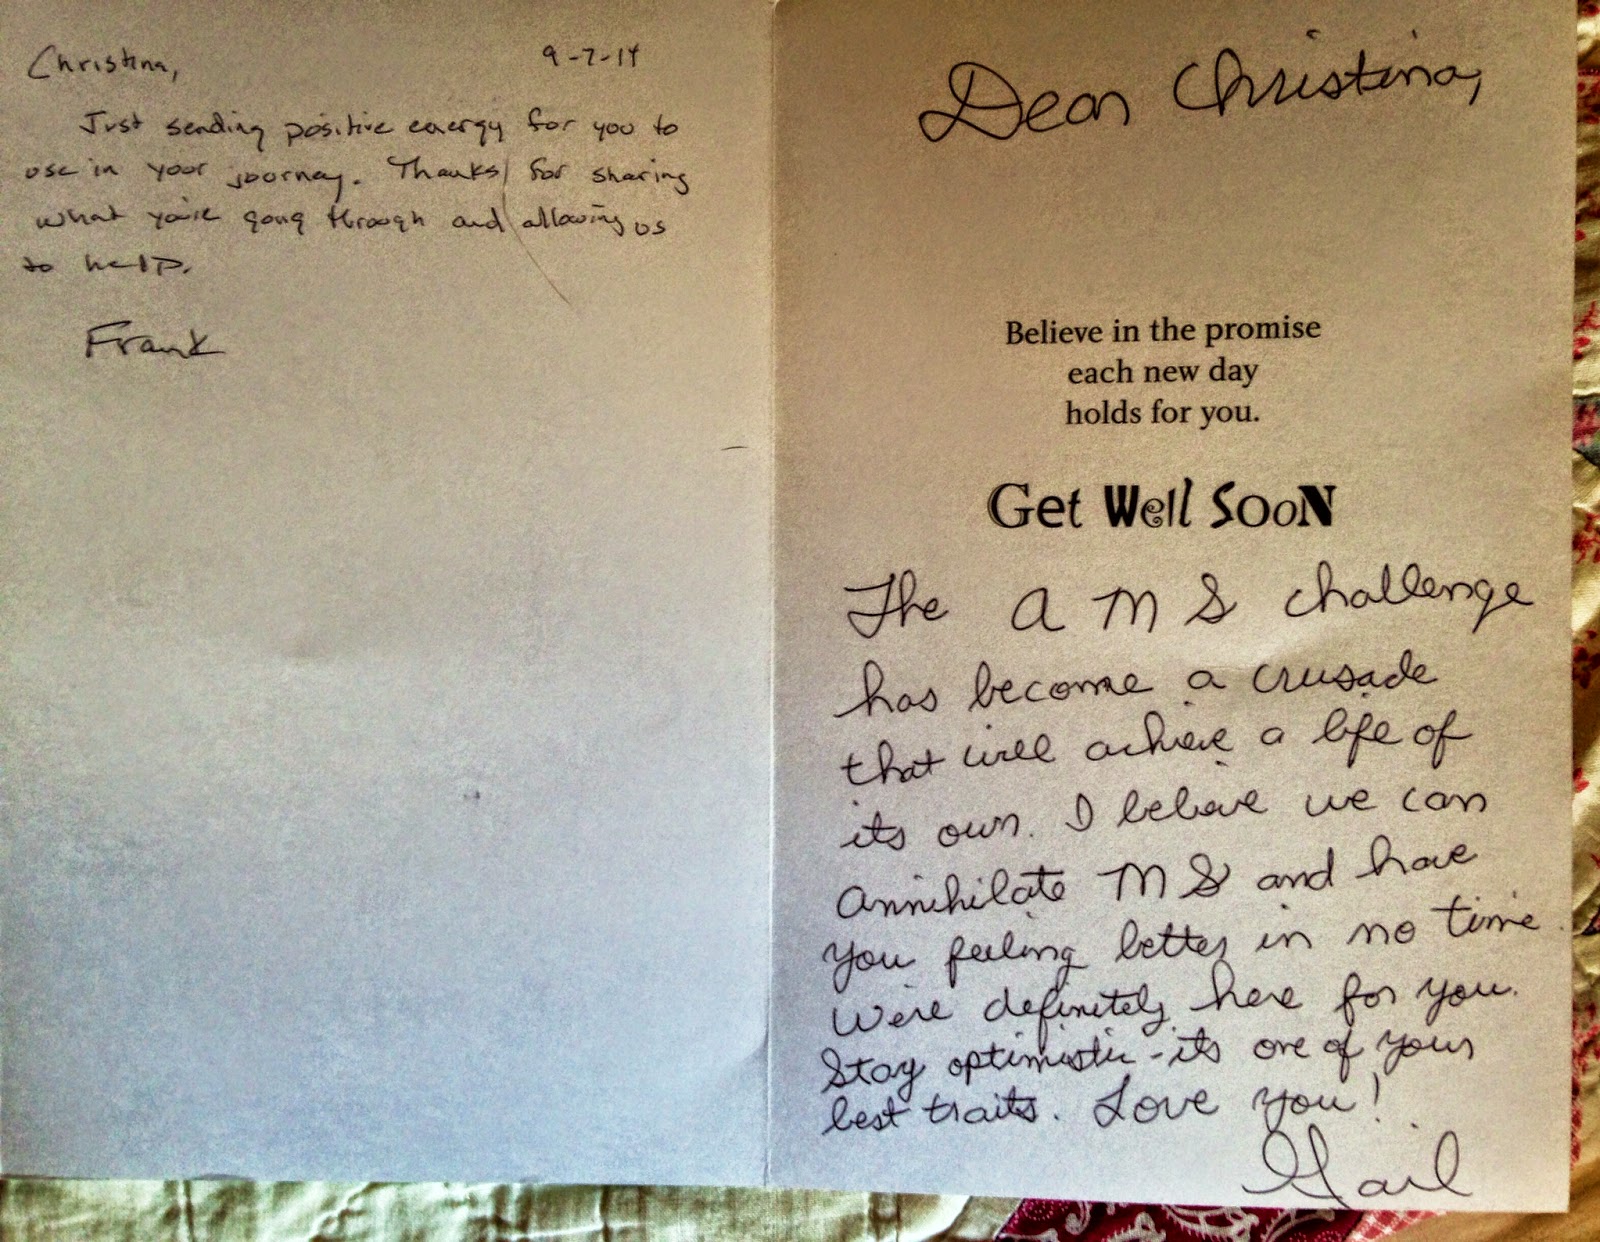 Christina,
9-7-14
Just sending positive energy for you to
use in your journey. Thanks for sharing
what you're going through and allowing us
to help.
Frank
Dear Christina,
Believe in the promise
each new day
holds for you.
Get Well Soon
The A M S challenge
has become a crusade
that will achieve a life of
its own. I believe we can
annihilate MS and have
you feeling better in no time.
We're definitely here for you.
Stay optimistic - it's one of your
best traits. Love you!
Gail